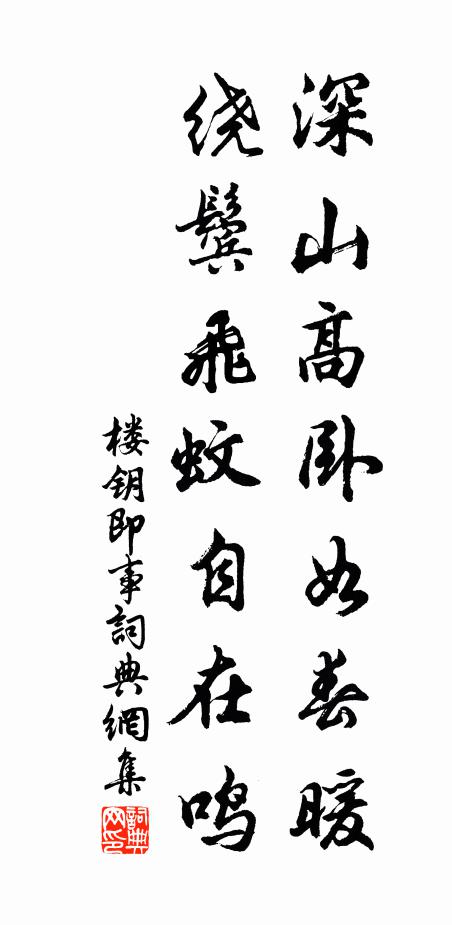 深山高卧如春暖
绕鬓飛蚊自在鸣
楼钥即事詞典網集
詞典网印